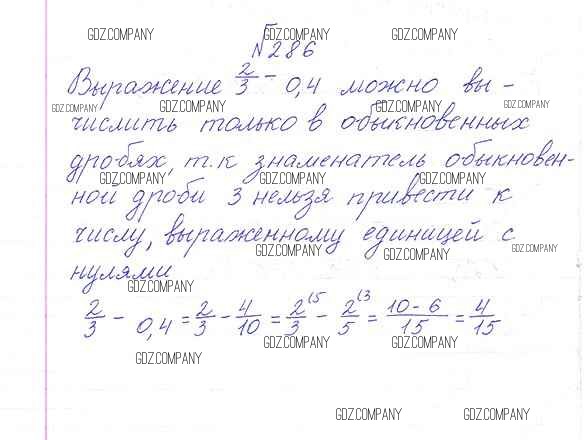 GDZ.COMPANY GDZ.COMPANY GDZ.COMPANY
№286
Выражение 2/3 - 0,4 можно вы-
GDZ.COMPANY GDZ.COMPANY GDZ.COMPANY GDZ.COMPANY
числить только в обыкновенных
дробях, т.к знаменатель обыкновен-
GDZ.COMPANY GDZ.COMPANY GDZ.COMPANY
ной дроби 3 нельзя привести к
числу, выраженному единицей с
GDZ.COMPANY GDZ.COMPANY GDZ.COMPANY
нулями
GDZ.COMPANY
2/3 - 0,4 = 2/3 - 4/10 = 2/3 (5 - 2/5 (3 = 10-6/15 = 4/15
GDZ.COMPANY GDZ.COMPANY
GDZ.COMPANY
GDZ.COMPANY GDZ.COMPANY